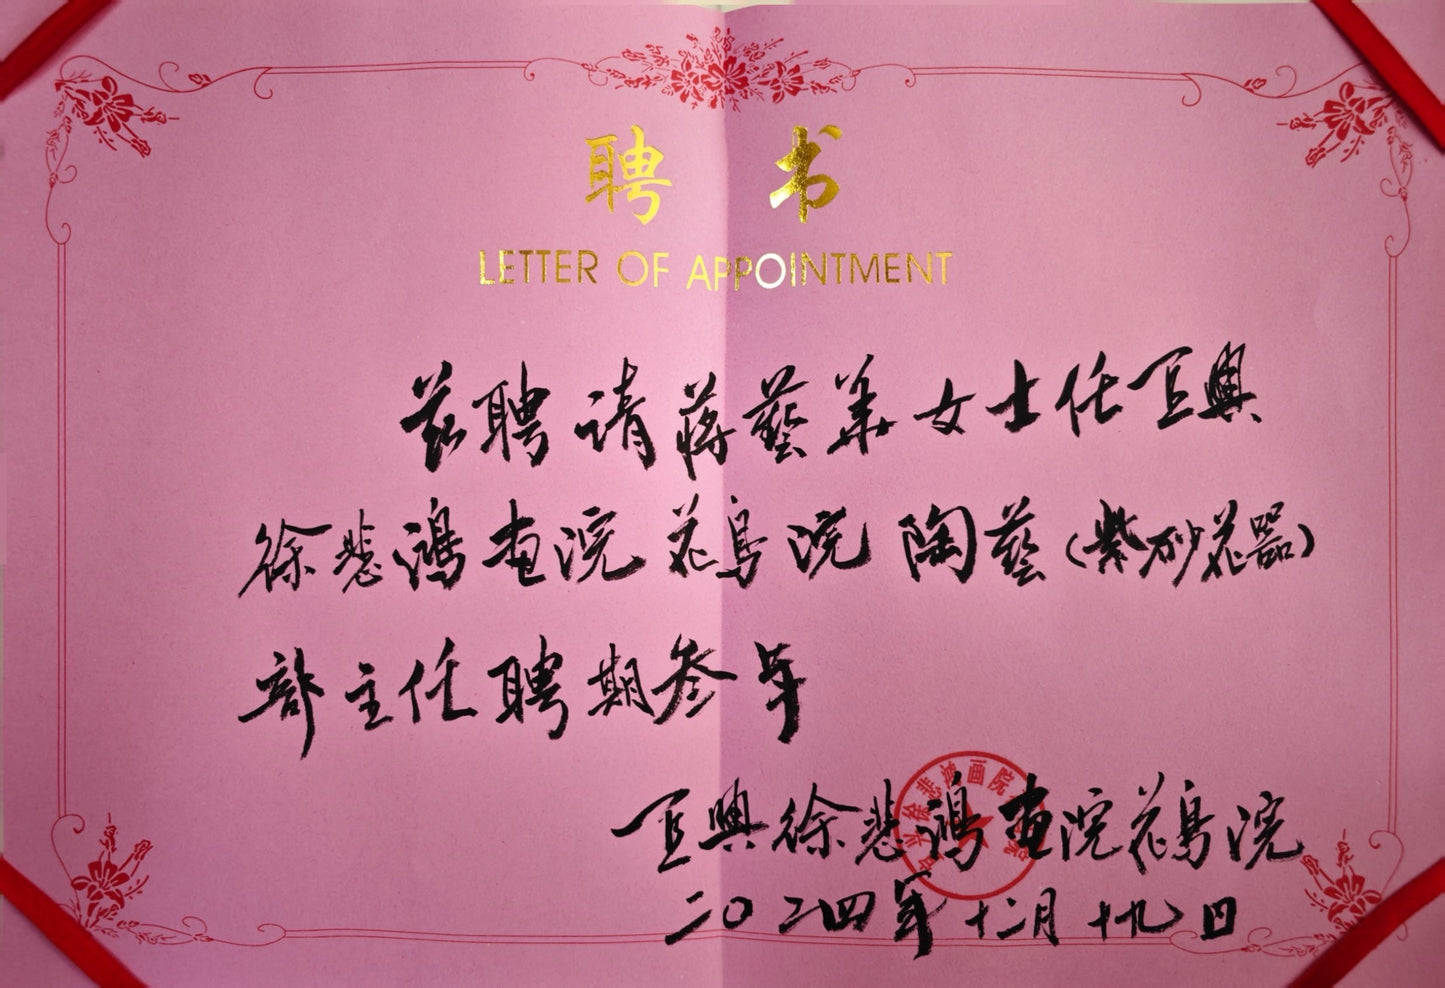 聘书
LETTER OF APPOINTMENT
兹聘请蒋藝华女士任宜興
徐悲鴻画院花鳥院陶藝(紫砂花器)
部主任聘期叁年
宜興徐悲鴻画院花鳥院
二〇二四年十二月十九日
徐悲鸿画院